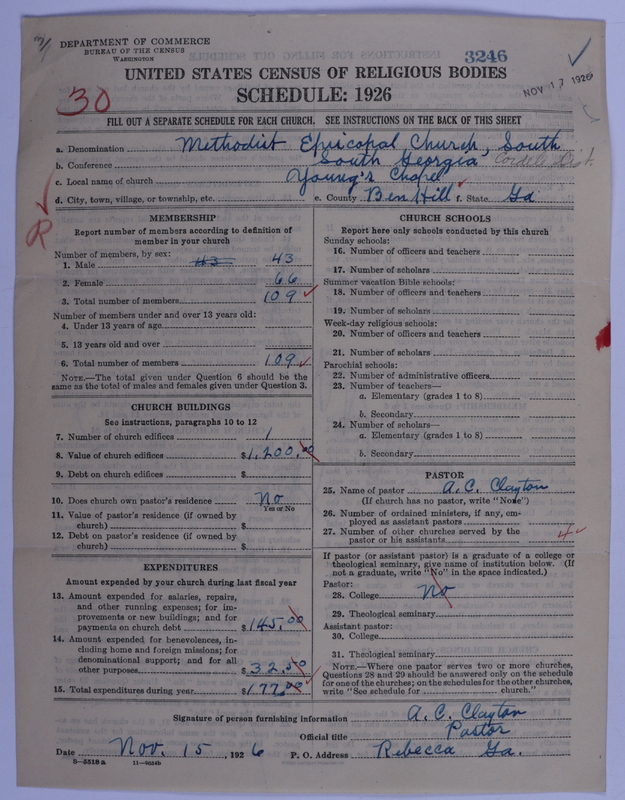 DEPARTMENT OF COMMERCE
BUREAU OF THE CENSUS
WASHINGTON
3246
NOV 17 1926
UNITED STATES CENSUS OF RELIGIOUS BODIES
SCHEDULE: 1926
30
FILL OUT A SEPARATE SCHEDULE FOR EACH CHURCH. SEE INSTRUCTIONS ON THE BACK OF THIS SHEET
a. Denomination Methodist Episcopal Church, South
b. Conference South Georgia Cordele Dist.
c. Local name of church Young's Chapel
d. City, town, village, or township, etc. e. County Ben Hill f. State Ga
R
MEMBERSHIP
Report number of members according to definition of member in your church
Number of members, by sex:
1. Male 43 43
2. Female 66
3. Total number of members 109
Number of members under and over 13 years old:
4. Under 13 years of age
5. 13 years old and over
6. Total number of members 109
NOTE.—The total given under Question 6 should be the same as the total of males and females given under Question 3.
CHURCH BUILDINGS
See instructions, paragraphs 10 to 12
7. Number of church edifices 1
8. Value of church edifices $1,200.00
9. Debt on church edifices $
10. Does church own pastor's residence No
Yes or No
11. Value of pastor's residence (if owned by church) $
12. Debt on pastor's residence (if owned by church) $
EXPENDITURES
Amount expended by your church during last fiscal year
13. Amount expended for salaries, repairs, and other running expenses; for improvements or new buildings; and for payments on church debt $145.00
14. Amount expended for benevolences, including home and foreign missions; for denominational support; and for all other purposes $32.50
15. Total expenditures during year $177.00
CHURCH SCHOOLS
Report here only schools conducted by this church
Sunday schools:
16. Number of officers and teachers
17. Number of scholars
Summer vacation Bible schools:
18. Number of officers and teachers
19. Number of scholars
Week-day religious schools:
20. Number of officers and teachers
21. Number of scholars
Parochial schools:
22. Number of administrative officers
23. Number of teachers—
a. Elementary (grades 1 to 8)
b. Secondary
24. Number of scholars—
a. Elementary (grades 1 to 8)
b. Secondary
PASTOR
25. Name of pastor A. C. Clayton
(If church has no pastor, write "None")
26. Number of ordained ministers, if any, employed as assistant pastors
27. Number of other churches served by the pastor or his assistants 4
If pastor (or assistant pastor) is a graduate of a college or theological seminary, give name of institution below. (If not a graduate, write "No" in the space indicated.)
Pastor:
28. College No
29. Theological seminary
Assistant pastor:
30. College
31. Theological seminary
NOTE.—Where one pastor serves two or more churches, Questions 28 and 29 should be answered only on the schedule for one of the churches; on the schedules for the other churches, write "See schedule for church."
Signature of person furnishing information A. C. Clayton
Official title Pastor
Date Nov. 15, 1926 P. O. Address Rebecca Ga.
8-5518a 11-9034b